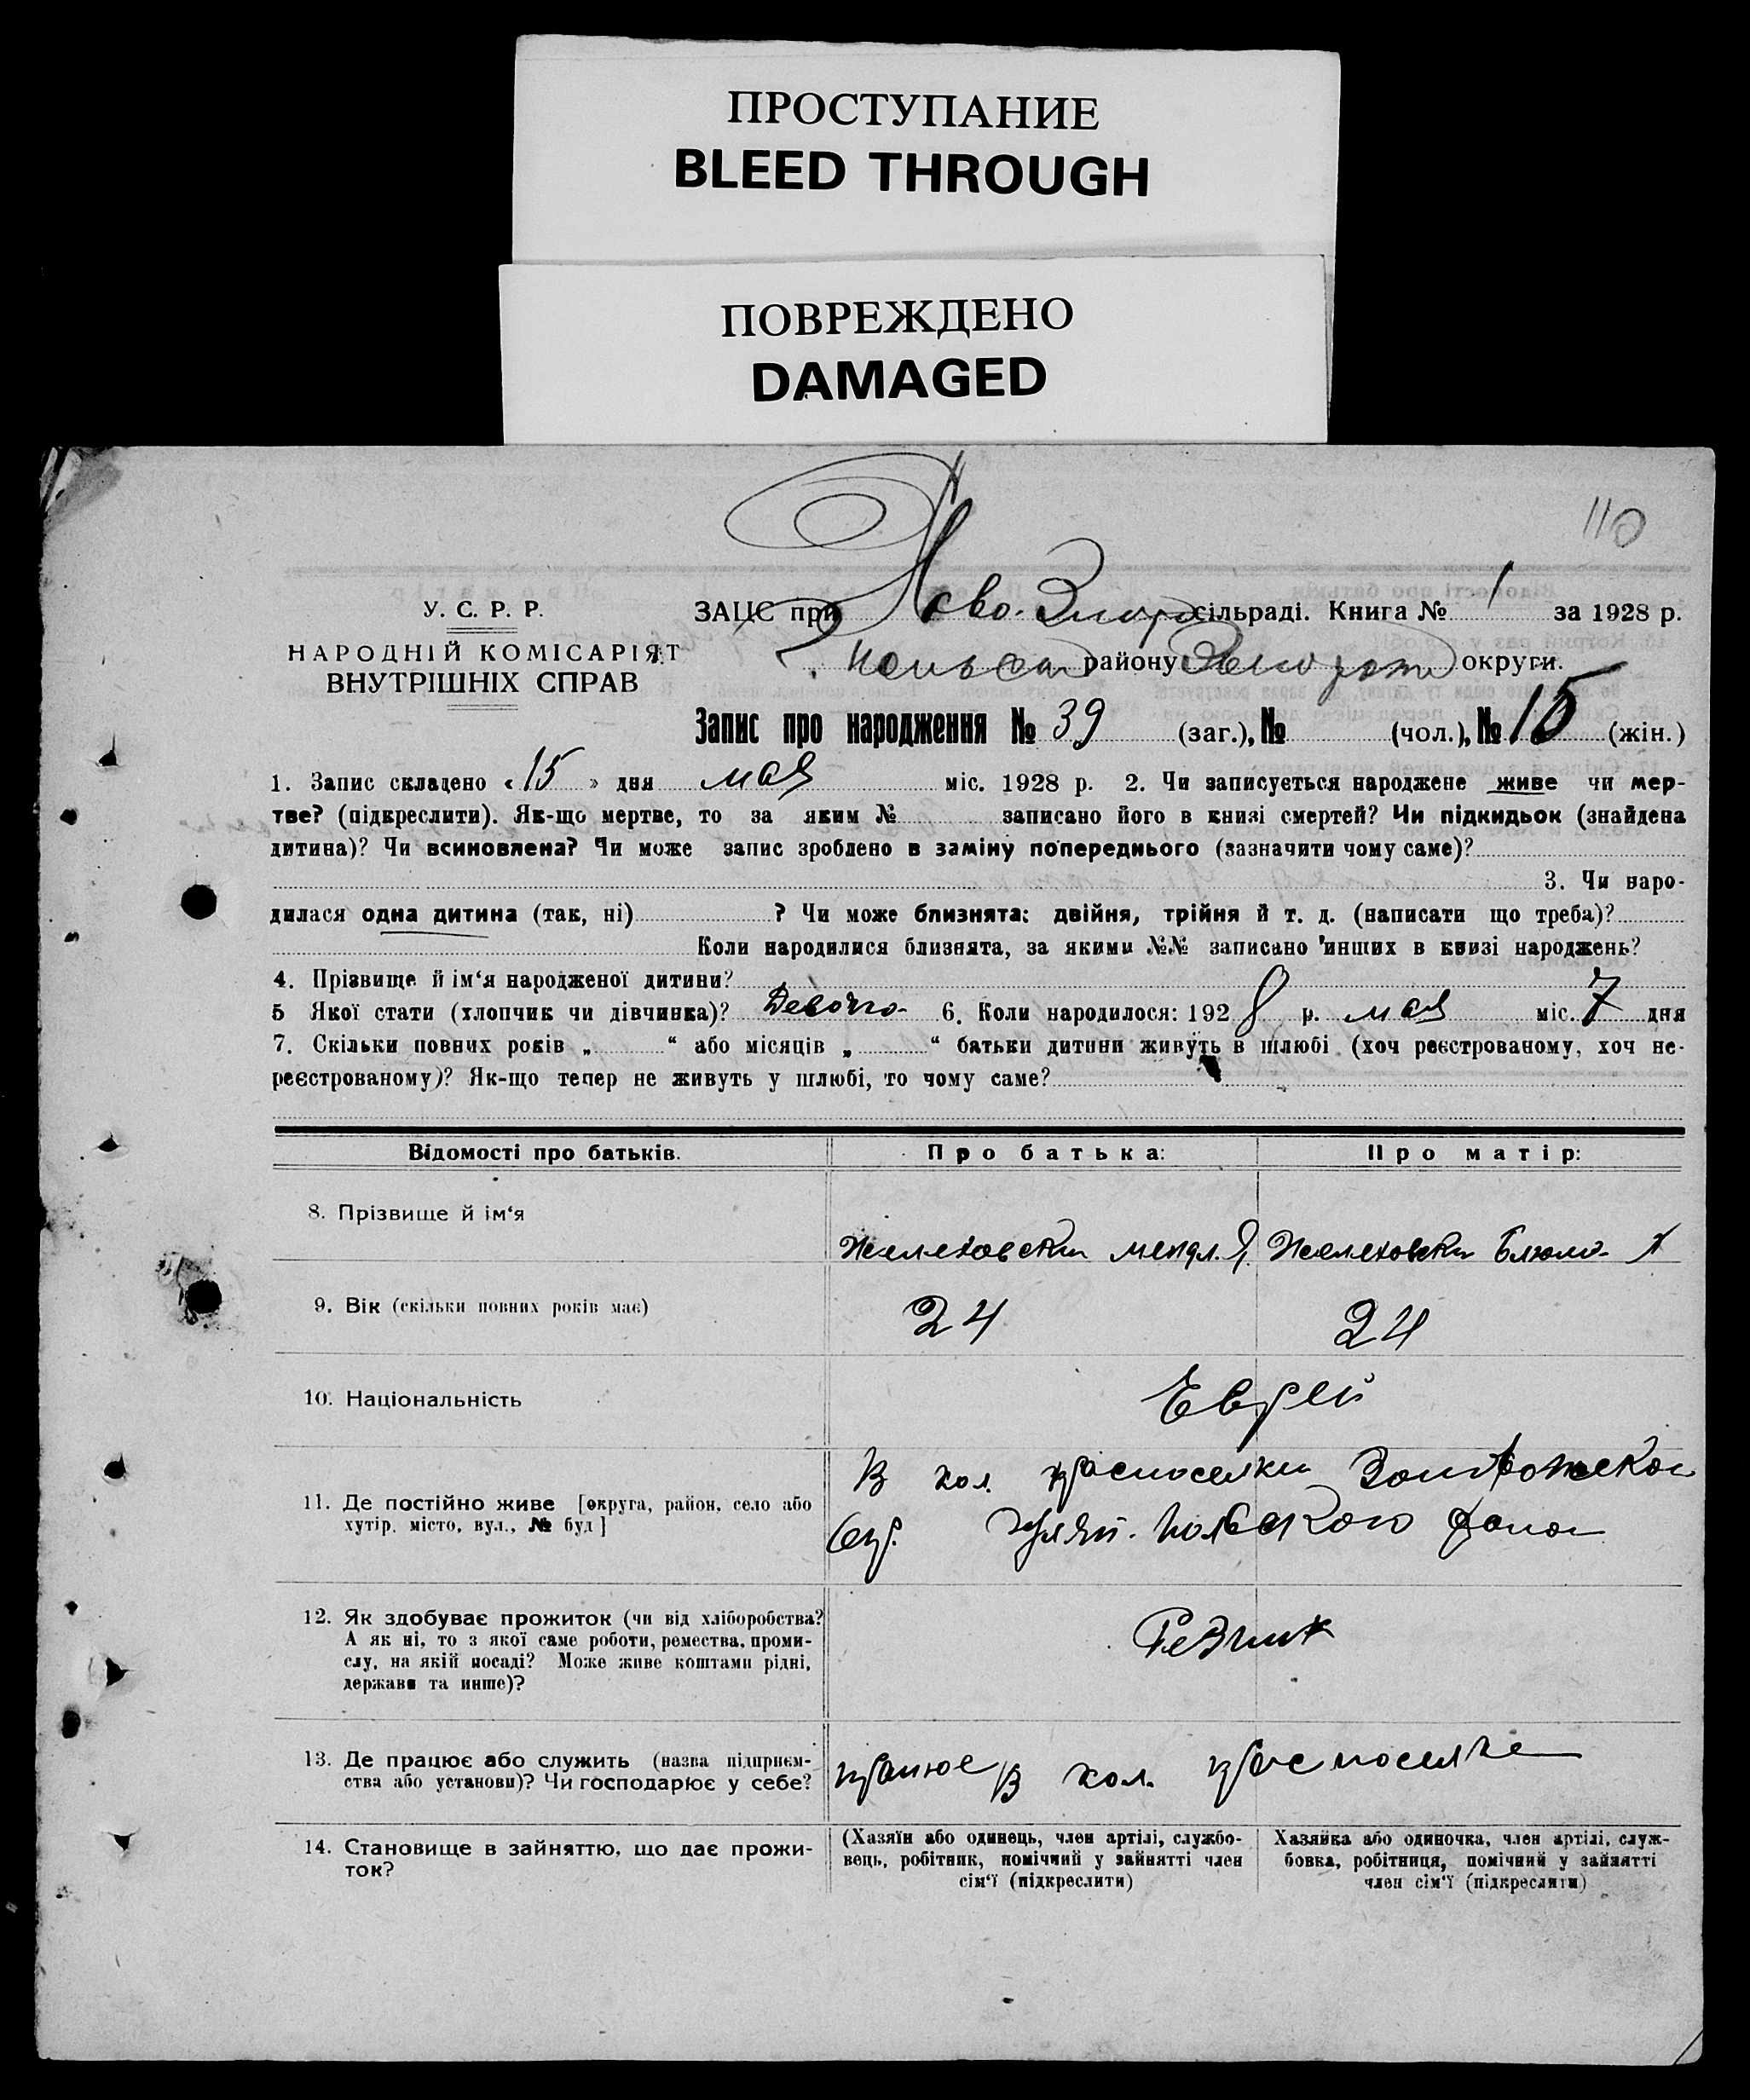 ПРОСТУПАНИЕ
BLEED THROUGH
ПОВРЕЖДЕНО
DAMAGED
110
У. С. Р. Р.
НАРОДНІЙ КОМІСАРІЯТ
ВНУТРІШНІХ СПРАВ
ЗАЦС при Ново. сільраді. Книга № 1 за 1928 р.
району округи.
Запис про народження № 39 (заг.), № (чол.), № 15 (жін.)
1. Запис складено «15» дня мая міс. 1928 р. 2. Чи записується народжене живе чи мер-
тве? (підкреслити). Як-що мертве, то за яким № записано його в книзі смертей? Чи підкидьок (знайдена
дитина)? Чи всиновлена? Чи може запис зроблено в заміну попереднього (зазначити чому саме)?
3. Чи наро-
дилася одна дитина (так, ні) ? Чи може близнята: двійня, трійня й т. д. (написати що треба)?
Коли народилися близнята, за якими №№ записано инших в книзі народжень?
4. Прізвище й ім‘я народженої дитини?
5 Якої стати (хлопчик чи дівчинка)? Девочка 6. Коли народилося: 1928 р. мая міс. 7 дня
7. Скільки повних років „ “ або місяців „ “ батьки дитини живуть в шлюбі (хоч реєстрованому, хоч не-
реєстрованому)? Як-що тепер не живуть у шлюбі, то чому саме?
Відомості про батьків. Про батька: Про матір:
8. Прізвище й ім‘я
Желеховски Мендл. Я. Желеховски Блюма
9. Вік (скільки повних років має) 24 24
10. Національність Еврей
11. Де постійно живе [округа, район, село або
хутір, місто, вул., № буд]
В кол. Красноселки
окр. район
12. Як здобуває прожиток (чи від хліборобства?
А як ні, то з якої саме роботи, ремества, проми-
слу, на якій посаді? Може живе коштами рідні,
держави та инше)?
Резник
13. Де працює або служить (назва підприєм-
ства або установи)? Чи господарює у себе?
працює в кол. Красноселке
14. Становище в зайняттю, що дає прожи-
ток?
(Хазяїн або одинець, член артілі, службо-
вець, робітник, помічний у зайнятті член
сім‘ї (підкреслити)
Хазяйка або одиночка, член артілі, служ-
бовка, робітниця, помічний у зайнятті
член сім‘ї (підкреслити)